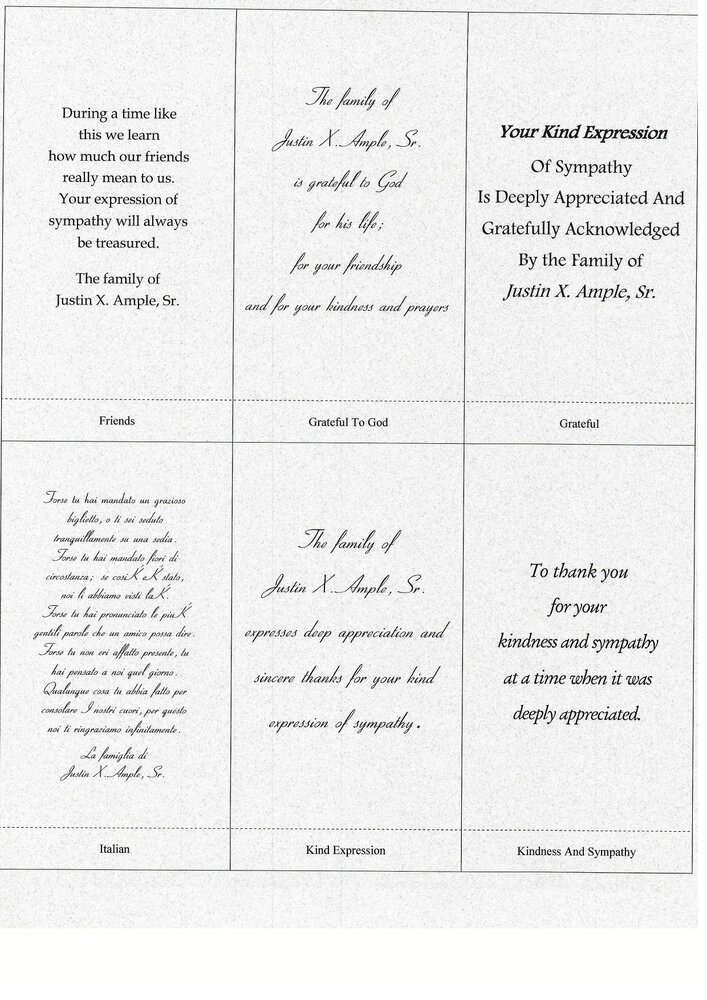 During a time like
this we learn
how much our friends
really mean to us.
Your expression of
sympathy will always
be treasured.
The family of
Justin X. Ample, Sr.
Friends
The family of
Justin X. Ample, Sr.
is grateful to God
for his life;
for your friendship
and for your kindness and prayers
Grateful To God
Your Kind Expression
Of Sympathy
Is Deeply Appreciated And
Gratefully Acknowledged
By the Family of
Justin X. Ample, Sr.
Grateful
Forse tu hai mandato un grazioso
biglietto, o ti sei seduto
tranquillamente su una sedia.
Forse tu hai mandato fiori di
circostanza; se cosiK eK stato,
noi li abbiamo visti laK.
Forse tu hai pronunciato le piuK
gentili parole che un amico possa dire.
Forse tu non eri affatto presente, tu
hai pensato a noi quel giorno.
Qualunque cosa tu abbia fatto per
consolare I nostri cuori, per questo
noi ti ringraziamo infinitamente.
La famiglia di
Justin X. Ample, Sr.
Italian
The family of
Justin X. Ample, Sr.
expresses deep appreciation and
sincere thanks for your kind
expression of sympathy.
Kind Expression
To thank you
for your
kindness and sympathy
at a time when it was
deeply appreciated.
Kindness And Sympathy